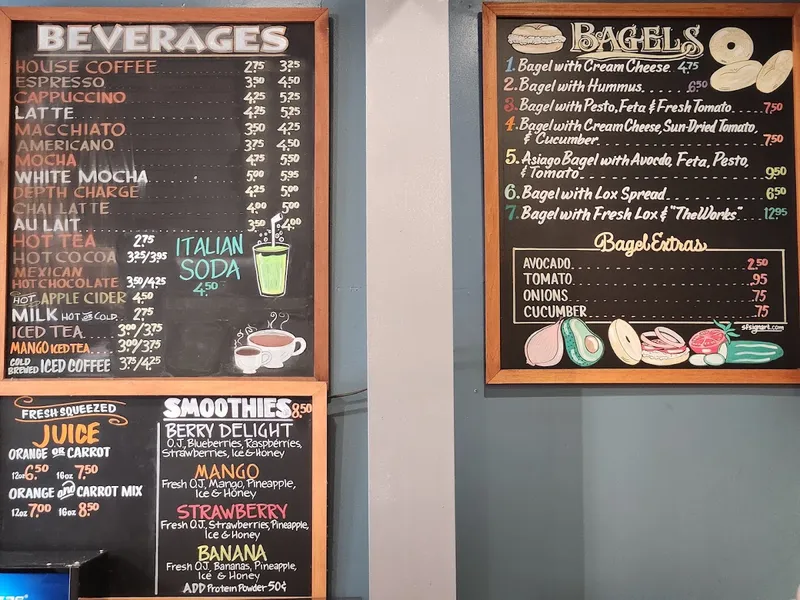 BEVERAGES
HOUSE COFFEE 2.75 3.25
ESPRESSO 3.50 4.50
CAPPUCCINO 4.25 5.25
LATTE 4.25 5.25
MACCHIATO 3.50 4.25
AMERICANO 3.75 4.50
MOCHA 4.75 5.50
WHITE MOCHA 5.00 5.95
DEPTH CHARGE 4.25 5.00
CHAI LATTE 4.00 5.00
AU LAIT 3.50 4.00
HOT TEA 2.75
HOT COCOA 3.25/3.95
MEXICAN
HOT CHOCOLATE 3.50/4.25
HOT APPLE CIDER 4.50
MILK HOT OR COLD 2.75
ICED TEA 3.00/3.75
MANGO ICED TEA 3.00/3.75
COLD BREWED ICED COFFEE 3.75/4.25
ITALIAN
SODA
4.50
FRESH SQUEEZED
JUICE
ORANGE OR CARROT
12oz 6.50 16oz 7.50
ORANGE and CARROT MIX
12oz 7.00 16oz 8.50
SMOOTHIES 8.50
BERRY DELIGHT
O.J., Blueberries, Raspberries,
Strawberries, Ice & Honey
MANGO
Fresh O.J., Mango, Pineapple,
Ice & Honey
STRAWBERRY
Fresh O.J., Strawberries, Pineapple,
Ice & Honey
BANANA
Fresh O.J., Bananas, Pineapple,
Ice & Honey
ADD Protein Powder 50¢
BAGELS
1. Bagel with Cream Cheese. 4.75
2. Bagel with Hummus. 6.50
3. Bagel with Pesto, Feta & Fresh Tomato. 7.50
4. Bagel with Cream Cheese, Sun-Dried Tomato,
& Cucumber. 7.50
5. Asiago Bagel with Avocdo, Feta, Pesto,
& Tomato. 9.50
6. Bagel with Lox Spread 6.50
7. Bagel with Fresh Lox & "The Works" 12.95
Bagel Extras
AVOCADO 2.50
TOMATO .95
ONIONS .75
CUCUMBER .75
sfsignart.com